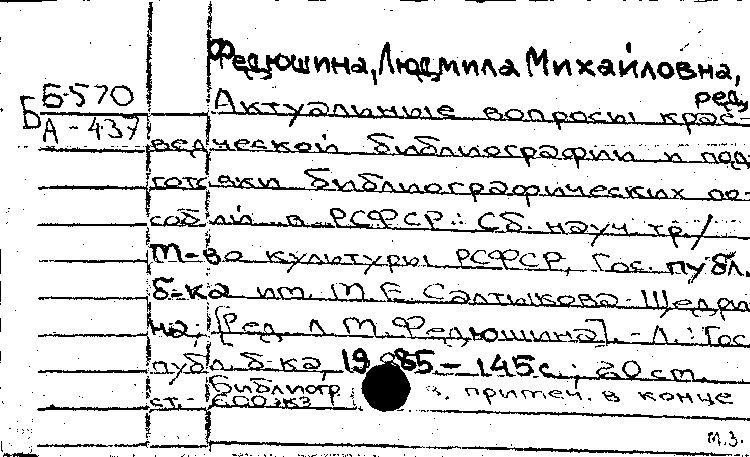 Федюшина, Людмила Михайловна,
ред.
Б-570
Б
А-437
Актуальные вопросы крае-
ведческой библиографии и под
готовки библиографических по-
собий в РСФСР.: Сб. науч. тр./
М-во культуры РСФСР, Гос. публ.
б-ка им. М.Е Салтыкова-Щедри
на; [Ред. Л.М. Федюшина]. - Л.: Гос
публ. б-ка, 1985 - 145с.; 20 ст.
Библиогр. в примеч. в конце
ст. - 600 экз
М.З.